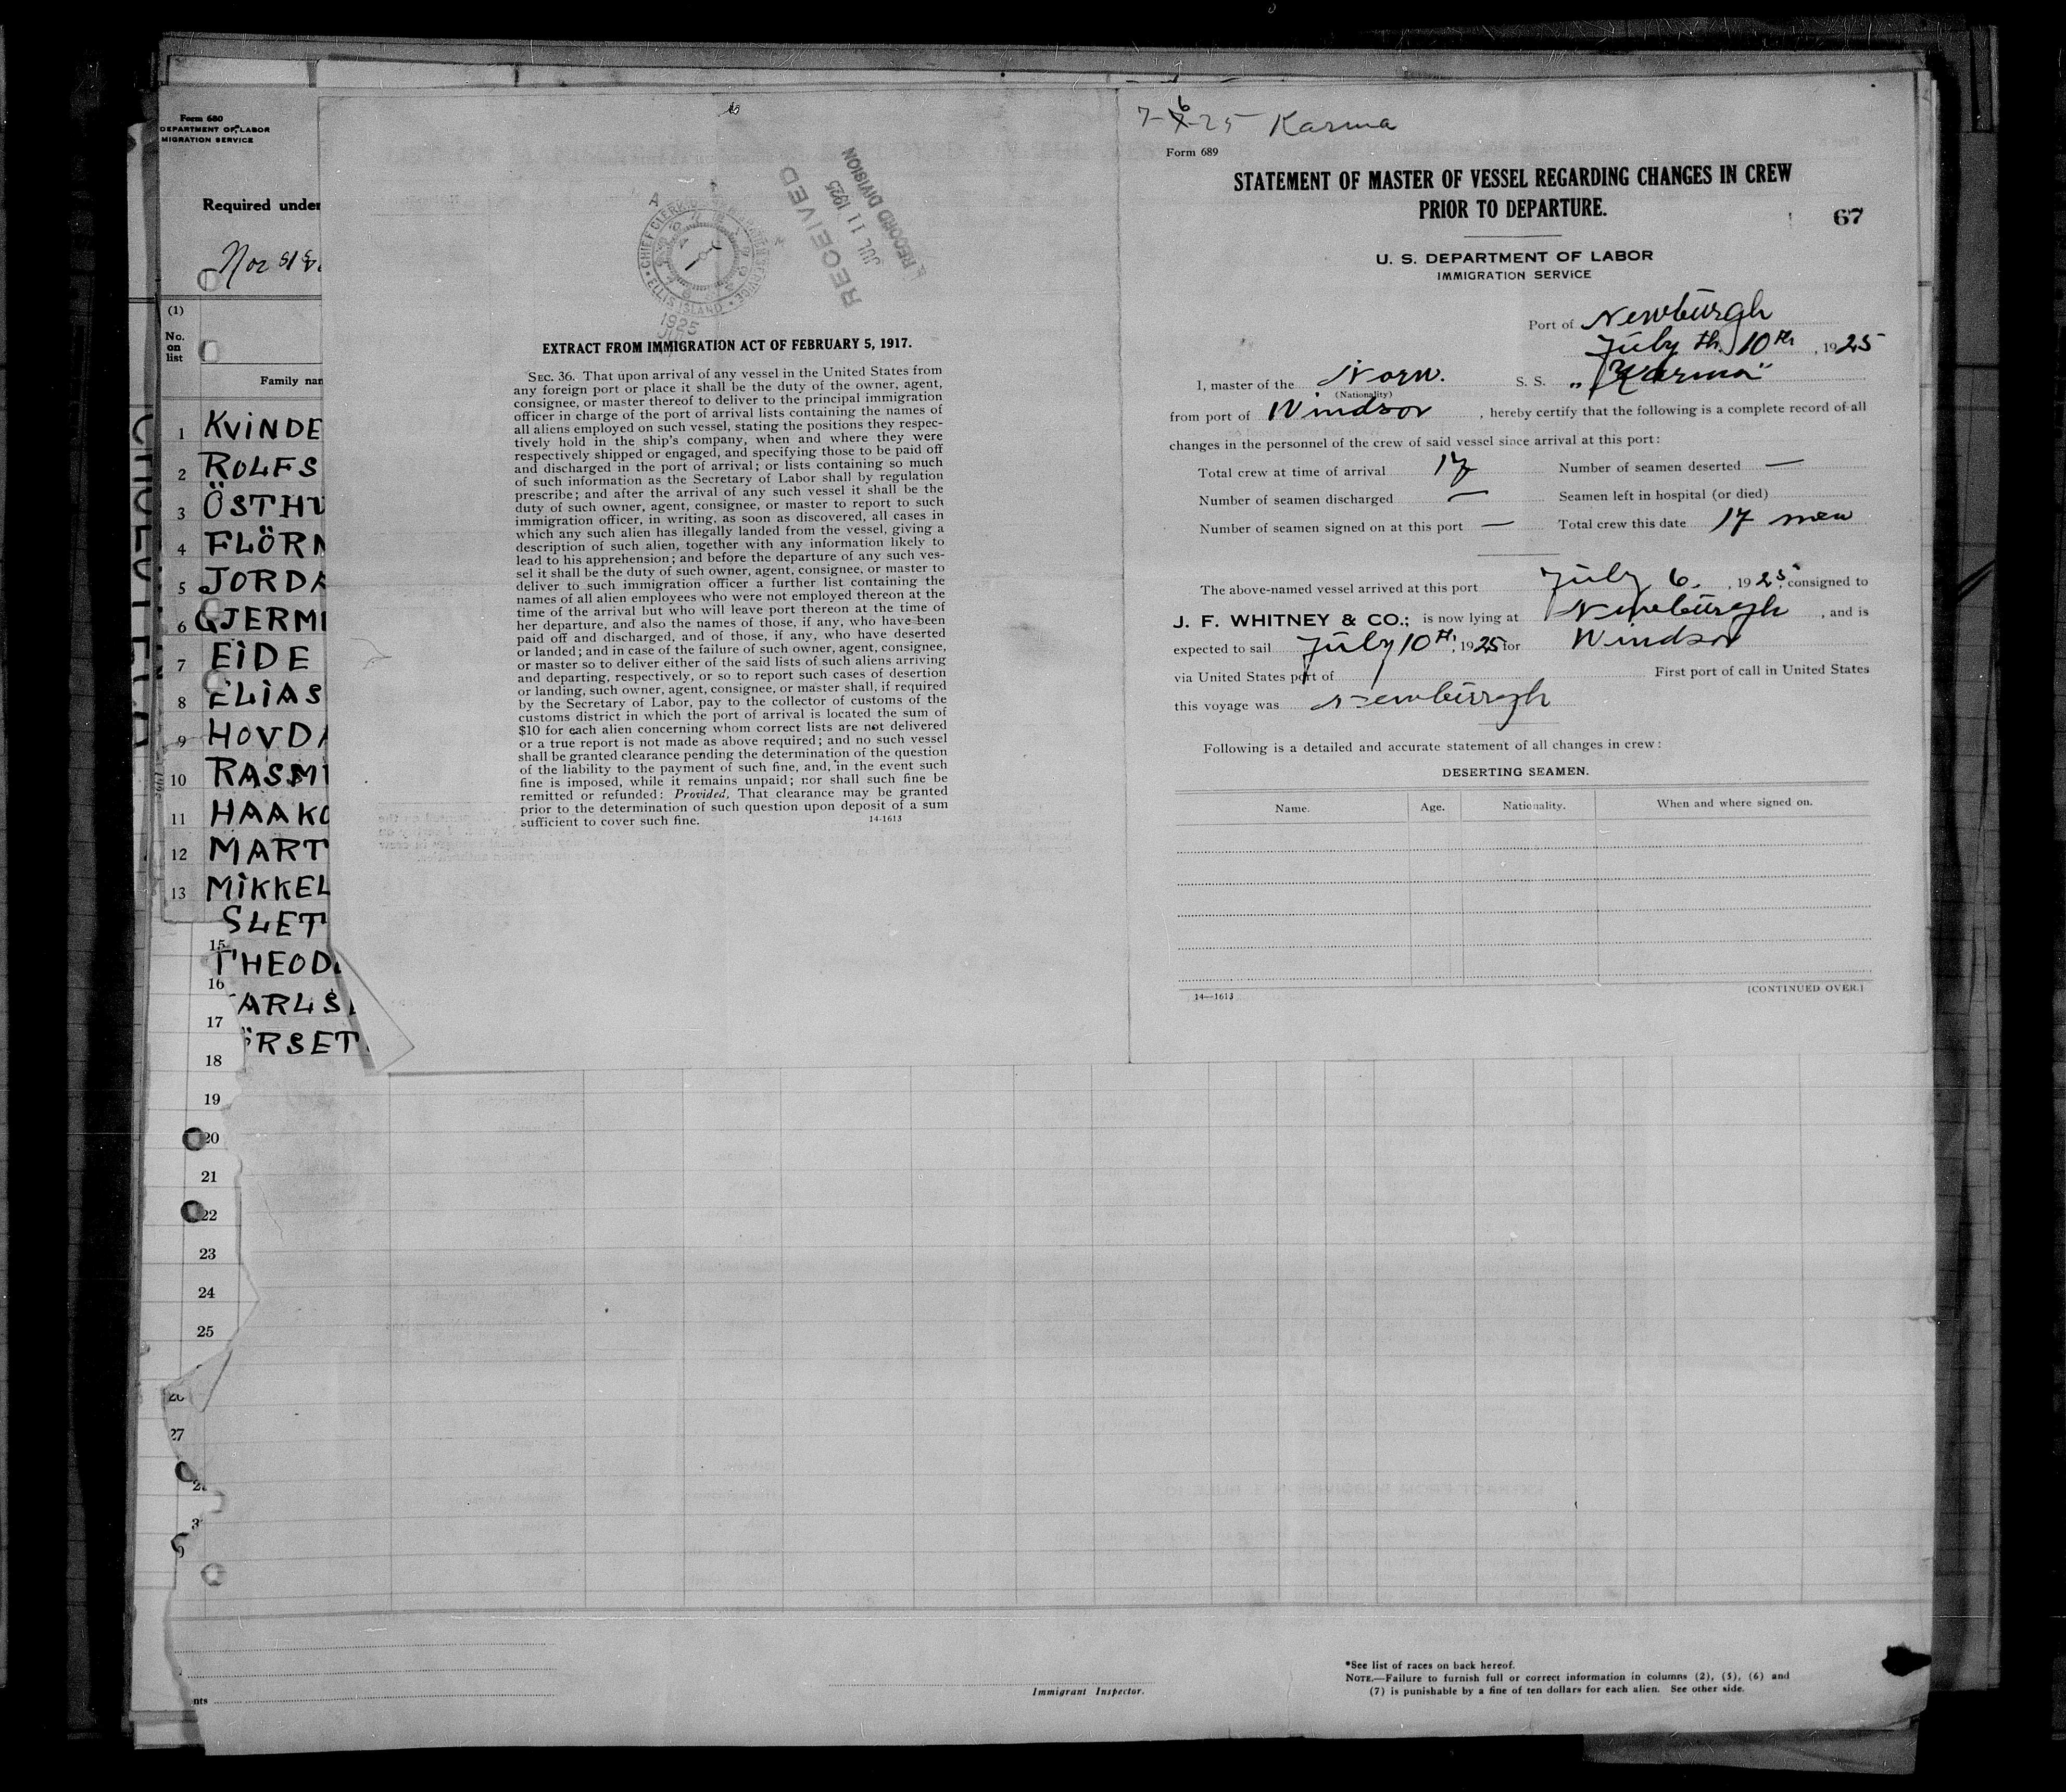 Form 680
DEPARTMENT OF LABOR
MIGRATION SERVICE
Required under
(1)
No.
on
list
Family nam
1 KVINDE
2 ROLFS
3 ÖSTHU
4 FLÖRN
5 JORDA
6 GJERMI
7 EIDE
8 ELIAS
9 HOVDA
10 RASMU
11 HAAKO
12 MART
13 MIKKEL
SLET
15 THEOD
16 ARLS
17 ÖRSET
18
19
20
21
22
23
24
25
26
27
nts
CHIEF CLERK'S
ELLIS ISLAND
1925
RECEIVED
JUL 11 1925
RECORD DIVISION
EXTRACT FROM IMMIGRATION ACT OF FEBRUARY 5, 1917.
SEC. 36. That upon arrival of any vessel in the United States from
any foreign port or place it shall be the duty of the owner, agent,
consignee, or master thereof to deliver to the principal immigration
officer in charge of the port of arrival lists containing the names of
all aliens employed on such vessel, stating the positions they respec-
tively hold in the ship's company, when and where they were
respectively shipped or engaged, and specifying those to be paid off
and discharged in the port of arrival; or lists containing so much
of such information as the Secretary of Labor shall by regulation
prescribe; and after the arrival of any such vessel it shall be the
duty of such owner, agent, consignee, or master to report to such
immigration officer, in writing, as soon as discovered, all cases in
which any such alien has illegally landed from the vessel, giving a
description of such alien, together with any information likely to
lead to his apprehension; and before the departure of any such ves-
sel it shall be the duty of such owner, agent, consignee, or master to
deliver to such immigration officer a further list containing the
names of all alien employees who were not employed thereon at the
time of the arrival but who will leave port thereon at the time of
her departure, and also the names of those, if any, who have been
paid off and discharged, and of those, if any, who have deserted
or landed; and in case of the failure of such owner, agent, consignee,
or master so to deliver either of the said lists of such aliens arriving
and departing, respectively, or so to report such cases of desertion
or landing, such owner, agent, consignee, or master shall, if required
by the Secretary of Labor, pay to the collector of customs of the
customs district in which the port of arrival is located the sum of
$10 for each alien concerning whom correct lists are not delivered
or a true report is not made as above required; and no such vessel
shall be granted clearance pending the determination of the question
of the liability to the payment of such fine, and, in the event such
fine is imposed, while it remains unpaid; nor shall such fine be
remitted or refunded: Provided, That clearance may be granted
prior to the determination of such question upon deposit of a sum
sufficient to cover such fine. 14-1613
7-6-25 Karma
Form 689
STATEMENT OF MASTER OF VESSEL REGARDING CHANGES IN CREW
PRIOR TO DEPARTURE.
67
U. S. DEPARTMENT OF LABOR
IMMIGRATION SERVICE
Port of Newburgh
July th. 10th, 1925
I, master of the Norw. S. S. "Karma"
(Nationality)
from port of Windsor, hereby certify that the following is a complete record of all
changes in the personnel of the crew of said vessel since arrival at this port:
Total crew at time of arrival 17 Number of seamen deserted —
Number of seamen discharged — Seamen left in hospital (or died)
Number of seamen signed on at this port — Total crew this date 17 men
The above-named vessel arrived at this port July 6., 1925, consigned to
J. F. WHITNEY & CO.; is now lying at Newburgh, and is
expected to sail July 10th, 1925 for Windsor
via United States port of First port of call in United States
this voyage was Newburgh
Following is a detailed and accurate statement of all changes in crew:
DESERTING SEAMEN.
Name. Age. Nationality. When and where signed on.
14—1613 [CONTINUED OVER.]
Immigrant Inspector.
*See list of races on back hereof.
NOTE.—Failure to furnish full or correct information in columns (2), (5), (6) and
(7) is punishable by a fine of ten dollars for each alien. See other side.